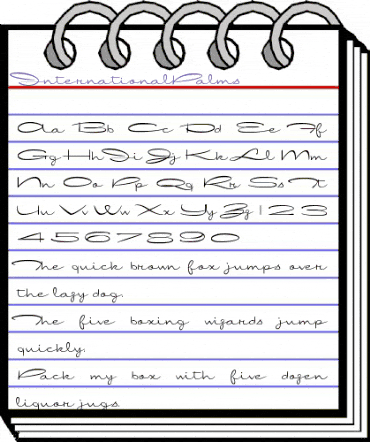 InternationalPalms
Aa Bb Cc Dd Ee Ff
Gg Hh Ii Jj Kk Ll Mm
Nn Oo Pp Qq Rr Ss Tt
Uu Vv Ww Xx Yy Zz 1 2 3
4 5 6 7 8 9 0
The quick brown fox jumps over
the lazy dog.
The five boxing wizards jump
quickly.
Pack my box with five dozen
liquor jugs.